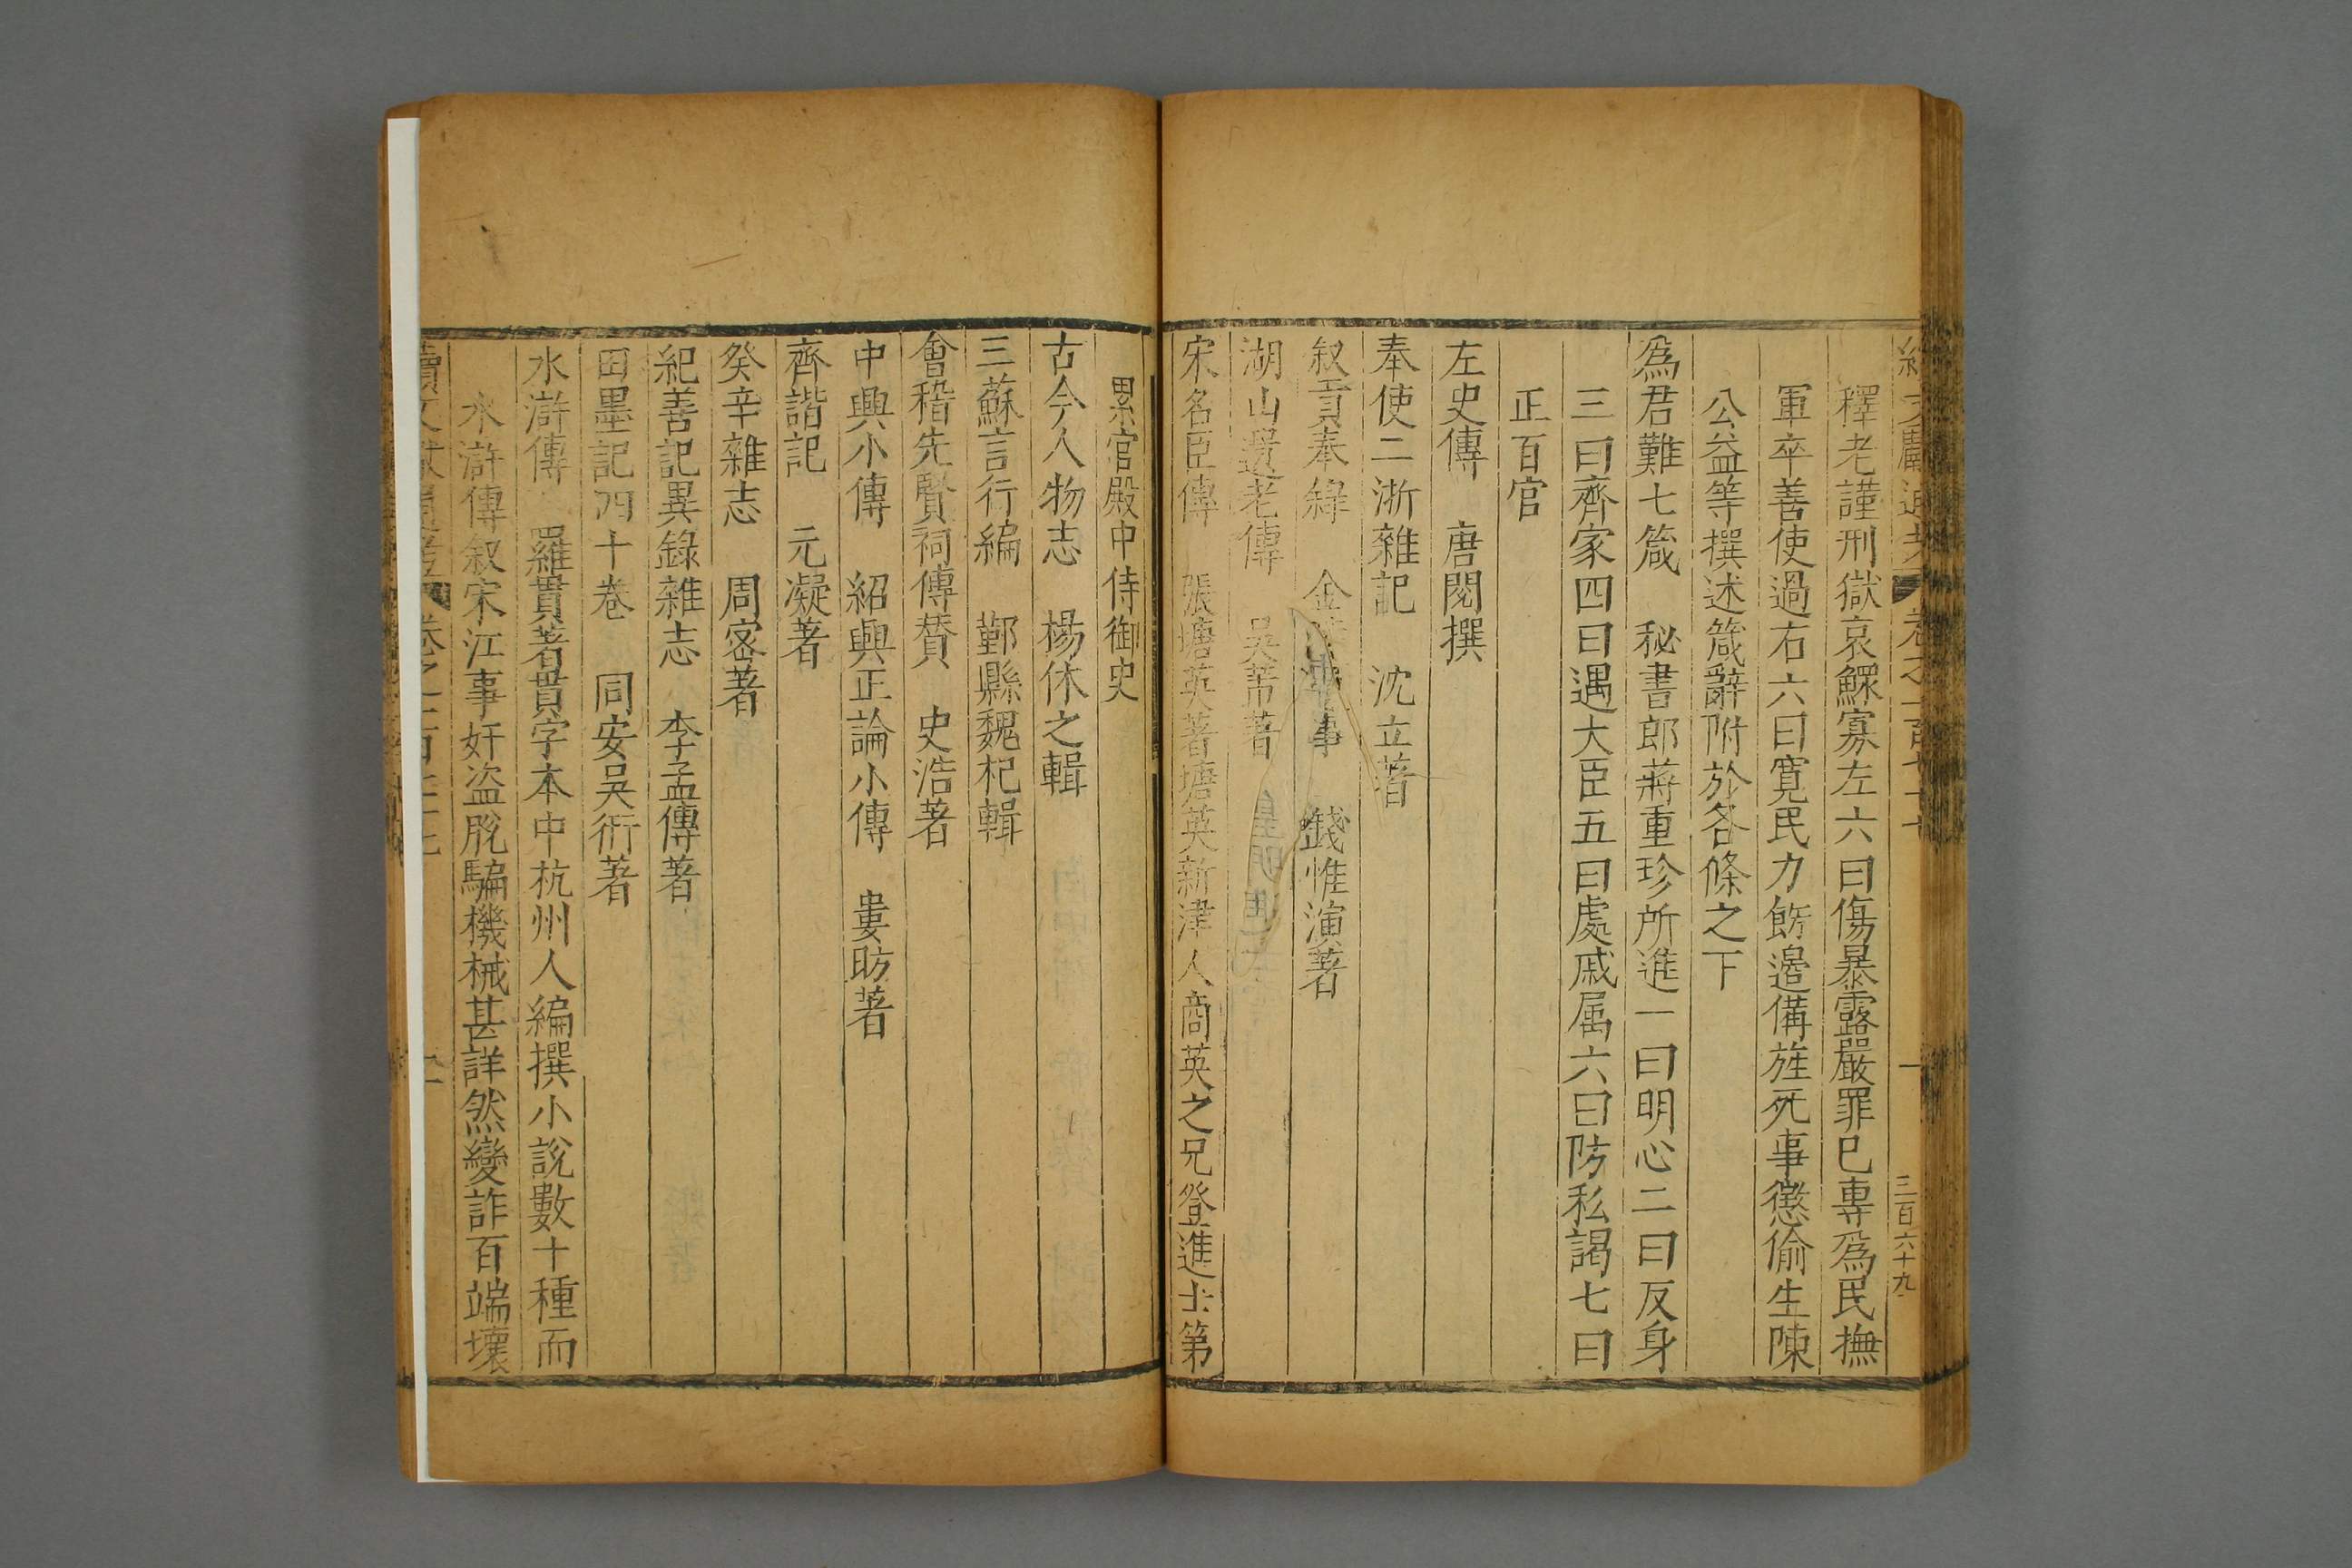 續文獻通考 卷之一百七十七 一 三百六十九
釋老謹刑獄哀鰥寡左六曰傷暴露嚴罪已專爲民撫
軍卒善使過右六曰寛民力飭邉備旌死事懲偷生陳
公益等撰述箴辭附於各條之下
爲君難七箴 秘書郎蔣重珍所進一曰明心二曰反身
三曰齊家四曰遇大臣五曰處戚属六曰防私謁七曰
正百官
左史傳 唐閱撰
奉使二浙雜記 沈立著
叙貢奉録 金 事 錢惟演著
湖山遺老傳 吳芾著
宋名臣傳 張塘英著塘英新津人商英之兄登進士第
累官殿中侍御史
古今人物志 楊休之輯
三蘇言行編 鄞縣魏杞輯
會稽先賢祠傳賛 史浩著
中興小傳 紹興正論小傳 婁昉著
齊諧記 元凝著
癸辛雜志 周密著
紀善記異錄雜志 李孟傳著
田墨記四十卷 同安吳衎著
水滸傳 羅貫著貫字本中杭州人編撰小說數十種而
水滸傳叙宋江事奸盜脫騙機械甚詳然變詐百端壞
續文獻通考 卷之一百七十七